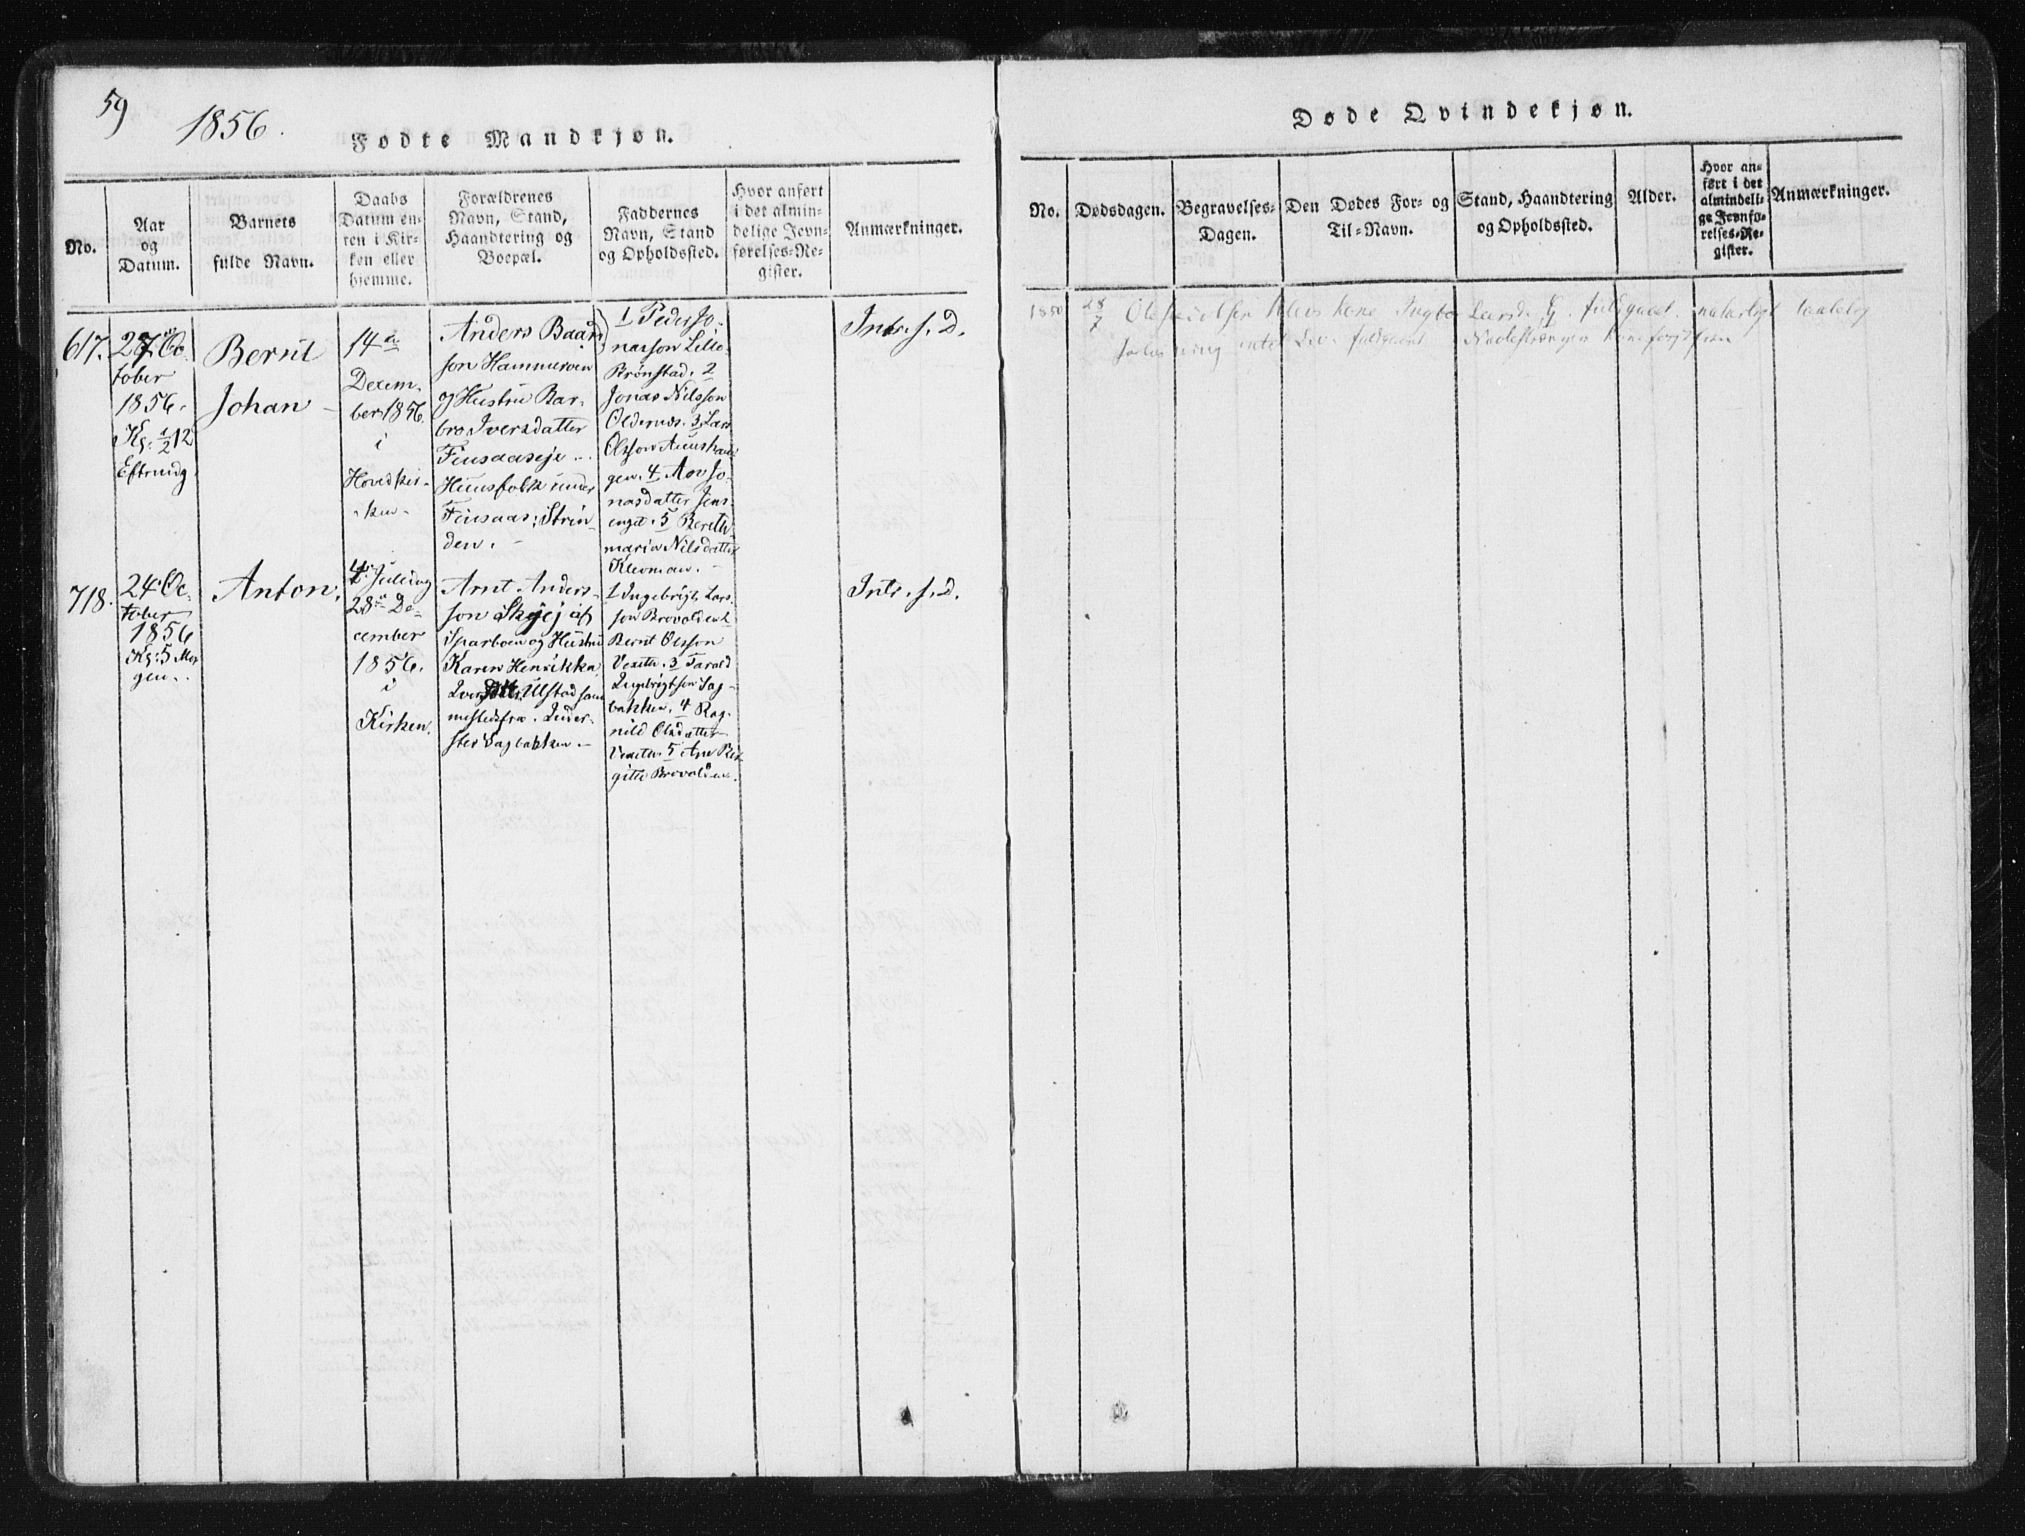 59
1856.
Fødte Mandkjøn.
No.
Aar
og
Datum.
Barnets
fulde Navn.
Daabs
Datum en-
ten i Kir-
ken eller
hjemme.
Forældrenes
Navn, Stand,
Haandtering og
Boepæl.
Faddernes
Navn, Stand
og Opholdssted.
Hvor anført
i det almin-
delige Jevn-
førelses-Re-
gister.
Anmærkninger.
617.
27 Oc
tober
1856.
Kg. ½12
Eftmidg
Bernt
Johan
14de
Decem-
ber 1856
i
Hovedkir-
ken
Anders Baar
son Hammeren
og Hustru Bar-
bro Iversdatter
Finsaaseje
Huusfolk under
Finsaas; Strin-
den.
1 Peder Jo-
nasson Lille-
Brønstad. 2
Jonas Nilsson
Oldernes. 3 Lars
Olsson
gen. 4 Jo-
nasdatter
enget. 5 Bereth-
maria Nilsdatter
Klevman.
Intr. s. D.
718.
24 Oc-
tober
1856
Kg: 5 Mor
gen.
Anton.
28de De-
cember
1856.
i
Kirken.
Arnt Anders-
son Skjej af
Sparboen og Hustru
Karen Henrikka
Ulstad sam
mestedsfra. Inder-
ster Sagbakken.
1 Ingebrigt Lars-
son Brovolden 2
Bernt Olsson
Vexeth. 3 Tarald
Ingebrigtson Sag-
bakken. 4 Rag-
nild Olsdatter
Vexeth. 5 Ane Bir-
gitte Brovolden.
Intr. s. D.
Døde Qvindekjøn.
No.
Dødsdagen.
Begravelses-
Dagen.
Den Dødes For- og
Til-Navn.
Stand, Haandtering
og Opholdssted.
Alder.
Hvor an-
ført i det
almindeli-
ge Jevnfø-
relses-Re-
gister.
Anmærkninger.
1850 28/7 Kone